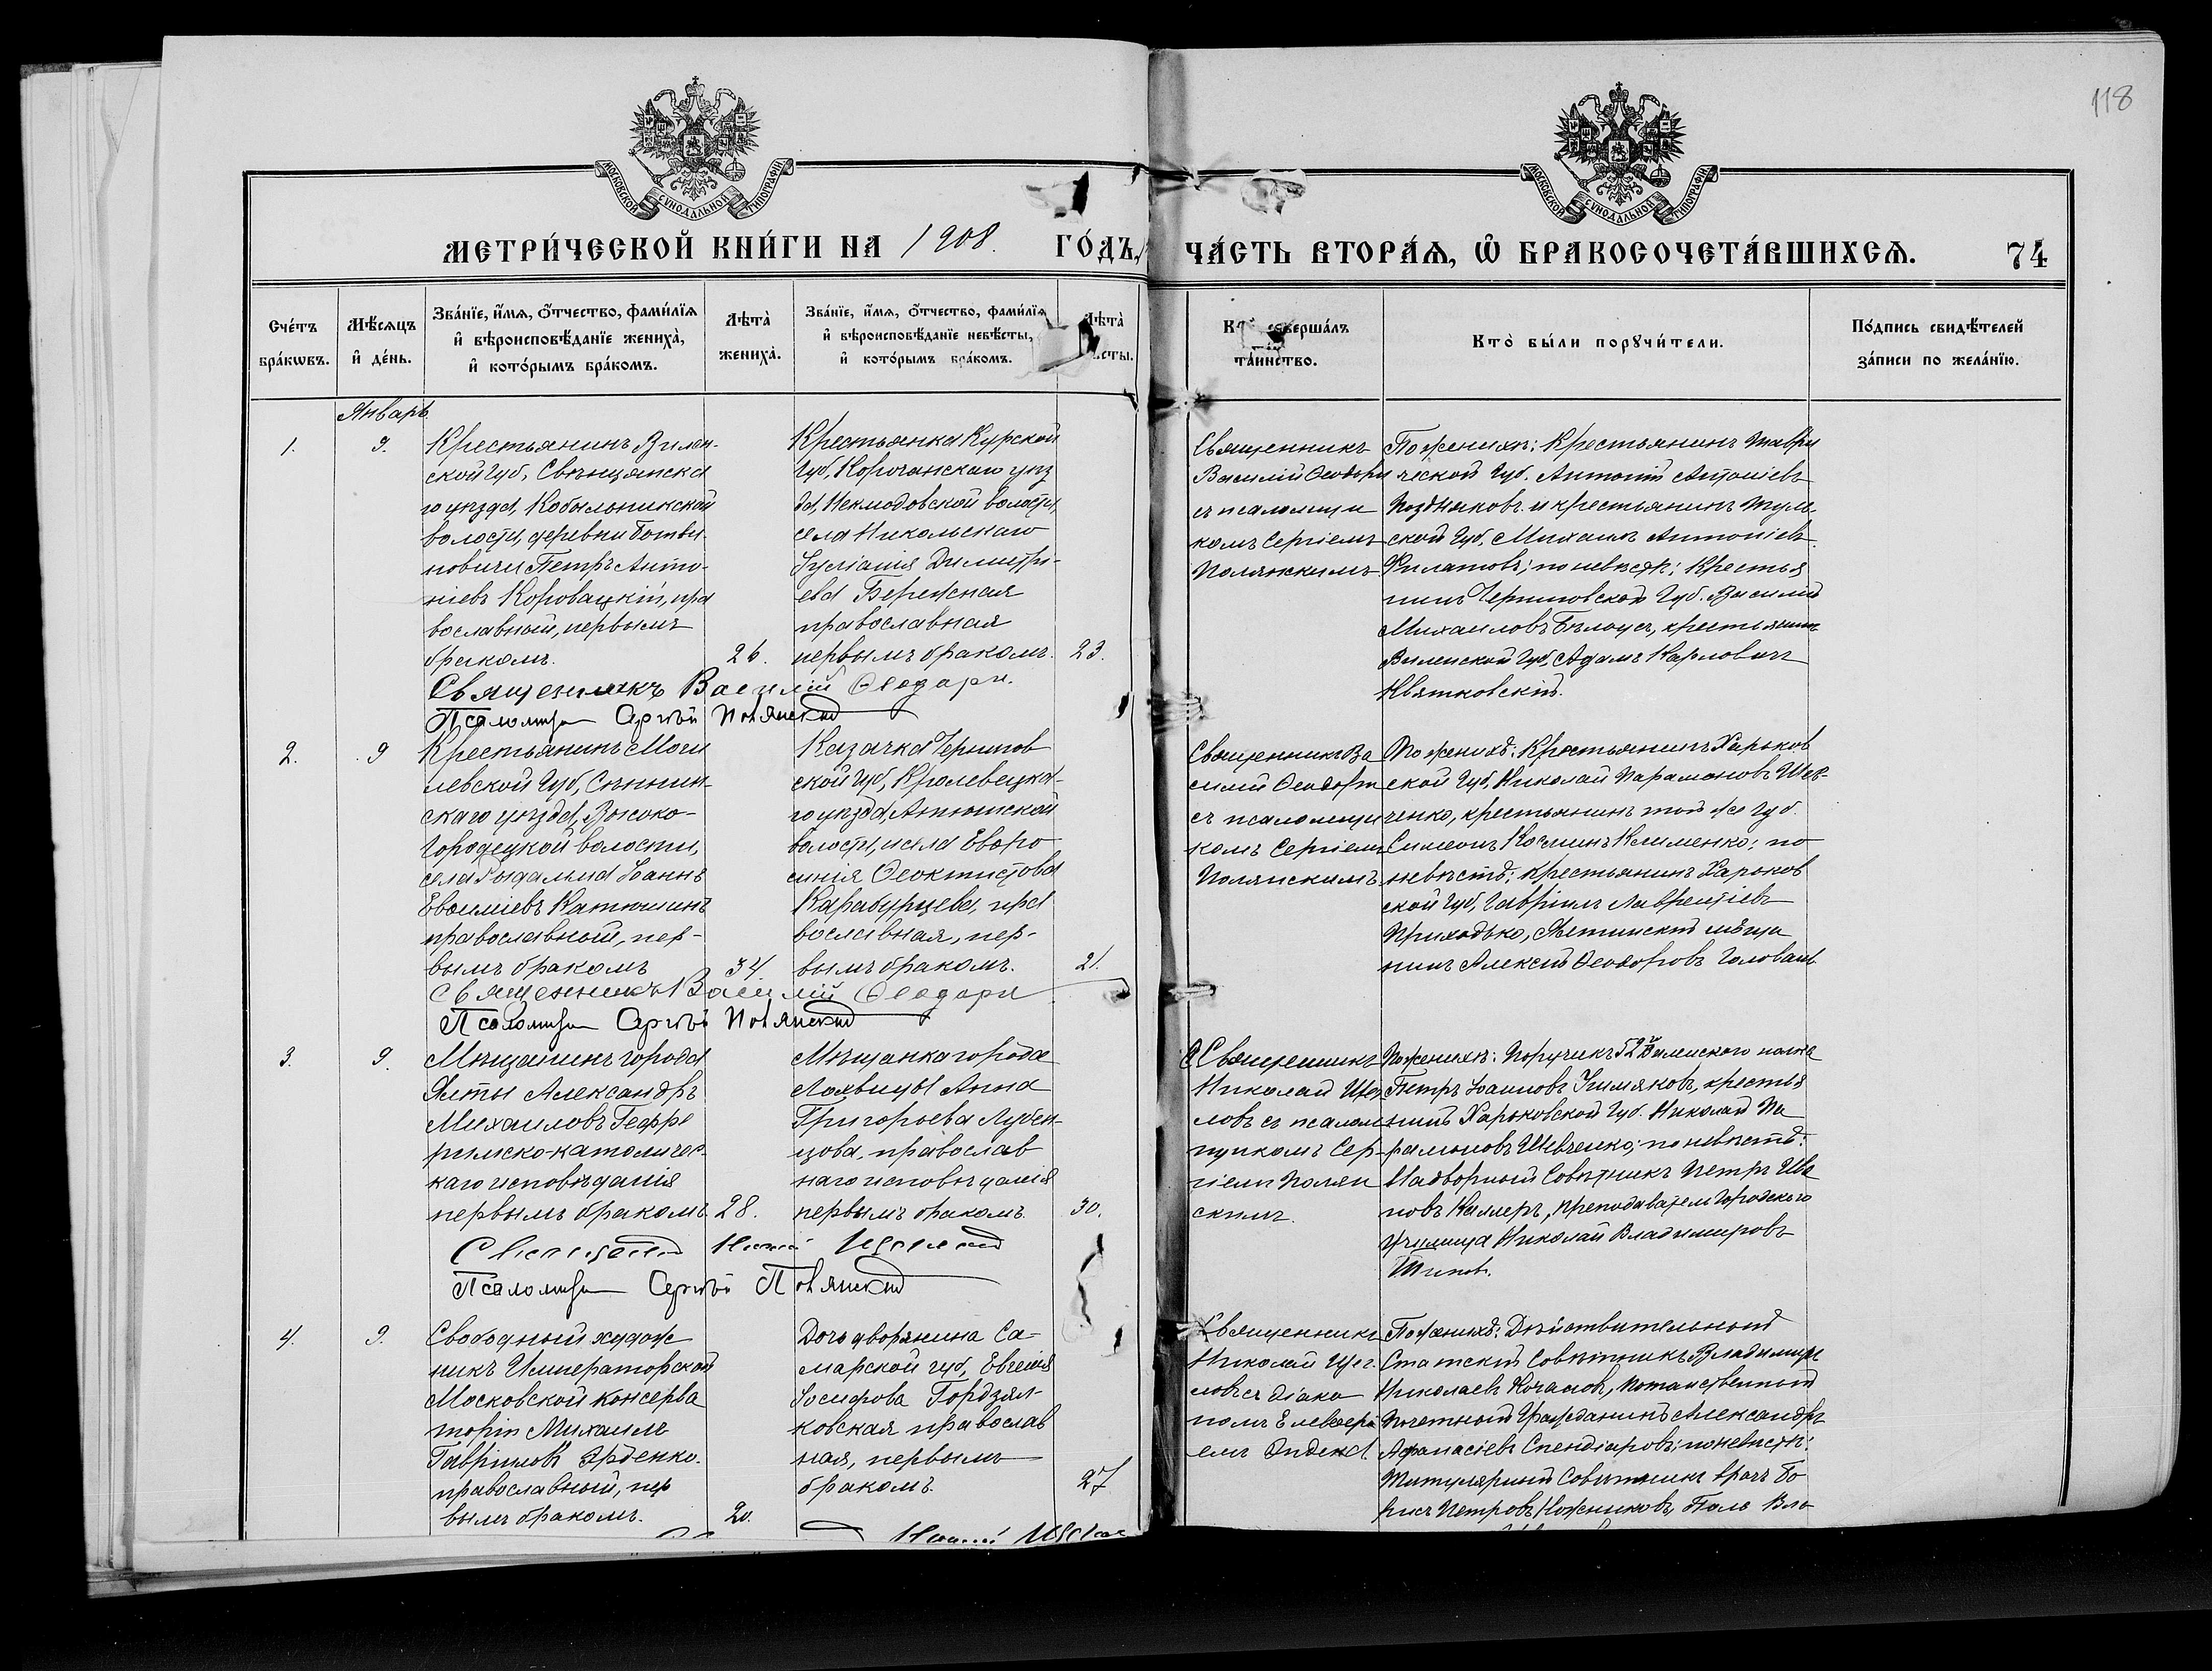 118
МОСКОВСКОЙ СѴНОДАЛЬНОЙ ТИПОГРАФІИ
МОСКОВСКОЙ СѴНОДАЛЬНОЙ ТИПОГРАФІИ
МЕТРИ́ЧЕСКОЙ КНИ́ГИ НА 1908. ГО́ДЪ,
ЧА́СТЬ ВТОРА́Ѧ, Ѽ БРАКОСОЧЕТА́ВШИХСѦ.
74
Сче́тъ
бра́кѡвъ.
Мѣ́сяцъ
и҆ де́нь.
Зва́нїе, и҆́мѧ, ѻ҆́тчество, фами́лїѧ
и҆ вѣроисповѣ́данїе жениха̀,
и҆ кото́рымъ бра́комъ.
Лѣта̀
жениха̀.
Зва́нїе, и҆́мѧ, ѻ҆́тчество, фами́лїѧ
и҆ вѣроисповѣ́данїе невѣ́сты,
и҆ кото́рымъ бра́комъ.
Лѣта̀
сты.
соверша́лъ
та́инство.
Кто̀ бы́ли порꙋчи́тели.
По́дпись свидѣ́телей
за́писи по жела́нїю.
Январь.
1.
9.
Крестьянинъ Вилен-
ской Губ, Свѣнцянска
го уѣзда, Кобыльникской
волости, деревни Ботви-
новичи Петръ Анто-
ніевъ Коровацкій, пра
вославный, первымъ
бракомъ.
26.
Крестьянка Курской
Губ, Корочанскаго уѣз
да, Неклюдовской волости,
села Никольскаго
Іуліанія Димитрі-
ева Бережная
православная
первымъ бракомъ.
23.
Священникъ
Василій Ѳеодори
съ псаломщи
комъ Сергіемъ
Полянскимъ
По женихѣ: Крестьянинъ Таври
ческой Губ. Антоній Антоніевъ
Поздняковъ и крестьянинъ Туль-
ской Губ, Михаилъ Антоніевъ
Филатовъ; по невѣстѣ: Крестья
нинъ Черниговской Губ. Василій
Михаиловъ Бѣлоусъ, крестьянинъ
Виленской Губ, Адамъ Карловичъ
Квятковскій.
Священникъ Василій Ѳеодори.
Псаломщи Сергѣй Полянский
2.
9
Крестьянинъ Моги
левской Губ, Сѣннин-
скаго уѣзда, Высоко-
Городецкой волости,
села Іоаннъ
Евѳиміевъ Катюшинъ
православный, пер-
вымъ бракомъ
34.
Казачка Чернигов
ской Губ, Кролевецка-
го уѣзда, Атюшской
волости, и села Евфро
синія Ѳеоктистова
Карабурцева, пра
вославная, пер-
вымъ бракомъ.
21.
Священникъ Ва
силій Ѳеодори
съ псаломщи
комъ Сергіемъ
Полянскимъ
По женихѣ: Крестьянинъ Харьков
ской Губ, Николай Парамоновъ Шев-
ченко, крестьянинъ той же Губ.
Симеонъ Косминъ Клименко; по
невѣстѣ: крестьянинъ Харьков
ской Губ, Гавріилъ Лаврентіевъ
Приходько, Ялтинскій мѣща
нинъ Алексѣй Ѳеодоровъ Головань.
Священникъ Василій Ѳеодори
Псаломщи Сергѣй Полянский
3.
9.
Мѣщанинъ города
Ялты Александръ
Михаиловъ Геффе
римско-католичес-
каго исповѣданія
первымъ бракомъ.
28.
Мѣщанка города
Лохвицы Анна
Григорьева Лубен-
цова, православ
наго исповѣданія
первымъ бракомъ.
30.
Священникъ
Николай Щег
ловъ съ псалом
щикомъ Сер-
гіемъ Полян
скимъ.
По женихѣ: Поручикъ 52 Виленскаго полка
Петръ Іоанновъ крестья
нинъ Харьковской Губ. Николай Па
рамоновъ Шевченко; по невѣстѣ:
Надворный Совѣтникъ Петръ Ива
новъ Келлеръ, преподаватель Городского
училища Николай Владимировъ
Псаломщи Сергѣй Полянский
4.
9.
Свободный худож
никъ Императорской
Московской консерва
торіи Михаилъ
Гавріиловъ Эрденко.
православный, пер
вымъ бракомъ.
20.
Дочь дворянина Са-
марской губ, Евгенія
Іосифова Гордзял-
ковская православ
ная, первымъ
бракомъ.
27
Священникъ
Николай Щег-
ловъ съ діако
номъ Елевѳері
емъ Эндека.
По женихѣ: Дѣйствительный
Статскій Совѣтникъ Владиміръ
Николаевъ Кочановъ, Потомственный
Почетный Гражданинъ Александръ
Афанасіевъ Спендіаровъ; по невѣстѣ:
Титулярный Совѣтникъ врачъ Бо
рисъ Петровъ Ножниковъ,